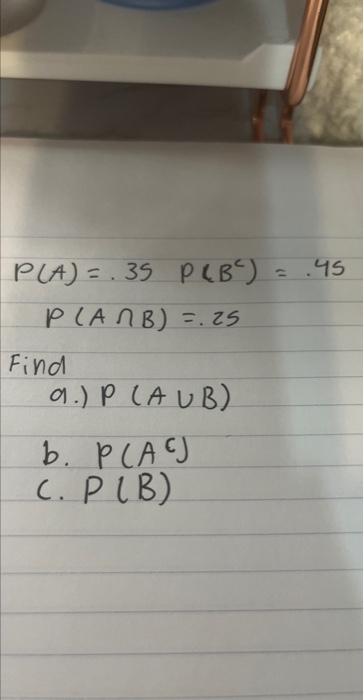 P(A) = .35 P(Bᶜ) = .45
P(A∩B) = .25
Find
a.) P(A∪B)
b. P(Aᶜ)
c. P(B)